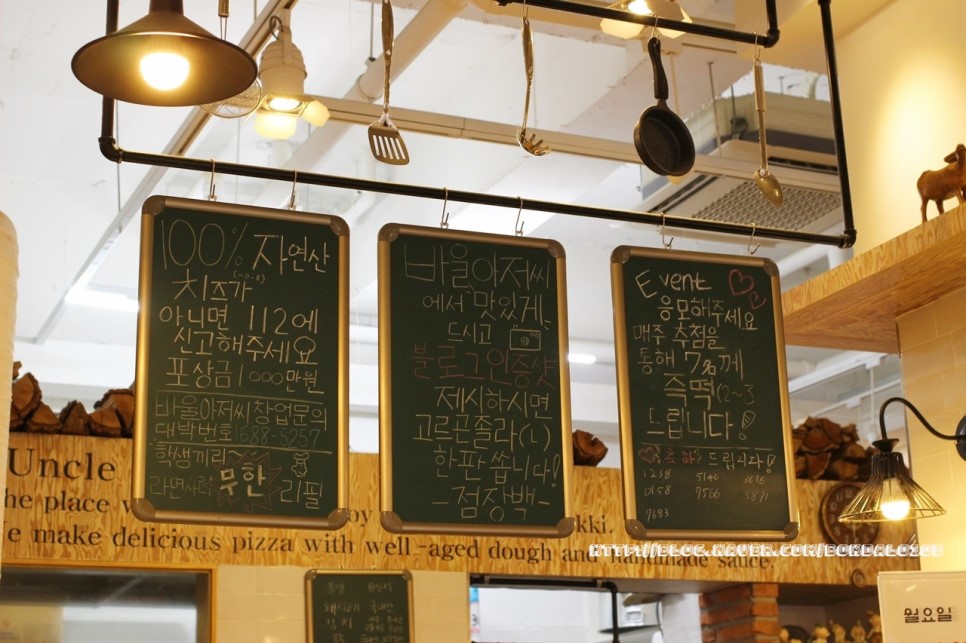 100% 자연산
치즈가
아니면 112에
신고해주세요
포상금 1000만원
바울아저씨 창업문의
대박번호 1688-5257
학생끼리~
라면사리 무한 리필
바울아저씨
에서 맛있게
드시고
블로그인증샷
제시하시면
고르곤졸라(L)
한판 쏩니다!
-점장백-
Event
응모해주세요
매주 추첨을
통해 7분께
즉떡(2~3
드립니다!
드립니다!
1238 5146 1616
0158 7566 5871
7683
Uncle
he place
e make delicious pizza with well-aged dough and handmade sauce.
HTTP://BLOG.NAVER.COM/
돼지고기 국내산
김치
월요일